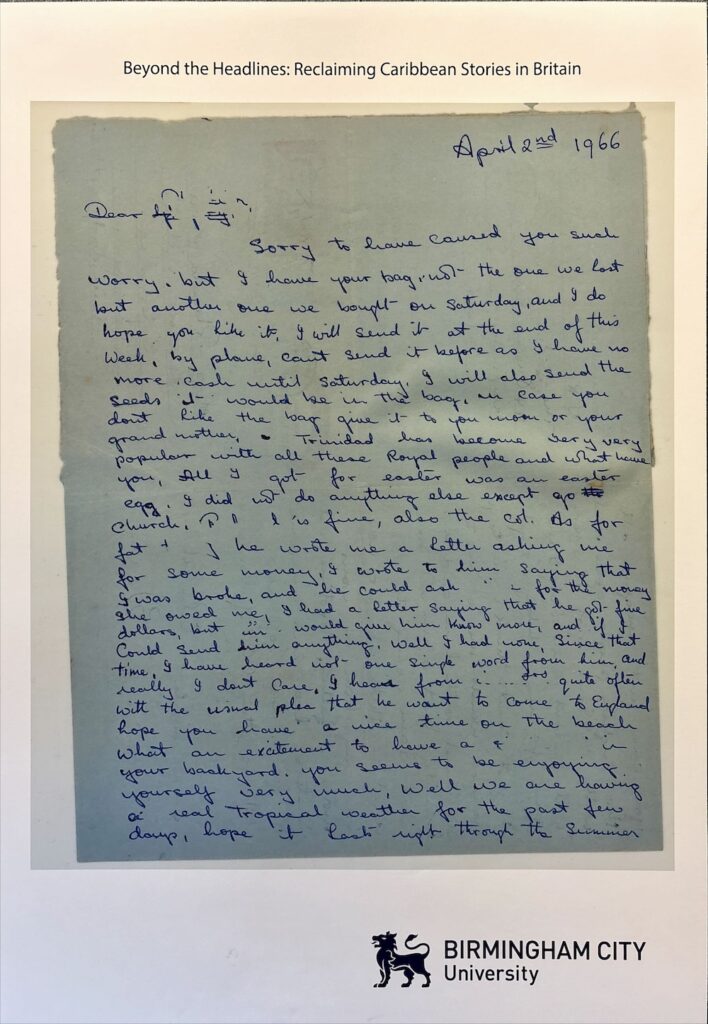 Beyond the Headlines: Reclaiming Caribbean Stories in Britain
April 2nd 1966
Dear
Sorry to have caused you such
worry. but I have your bag, not the one we lost
but another one we bought on Saturday, and I do
hope you like it. I will send it at the end of this
week, by plane, cant send it before as I have no
more cash until Saturday. I will also send the
seeds it would be in the bag, in case you
dont like the bag give it to you mom or your
grand mother. Trinidad has become very very
popular with all these Royal people and what have
you, All I got for easter was an easter
egg. I did not do anything else except go
church. is fine, also the col. As for
fat he wrote me a letter asking me
for some money, I wrote to him saying that
I was broke, and he could ask for the money
she owed me, I had a letter saying that he got five
dollars, but would give him know more, and if I
could send him anything, well I had none, Since that
time, I have heard not one single word from him, and
really I dont care, I hear from quite often
with the usual plea that he want to come to England
hope you have a nice time on the beach
what an excitement to have a in
your backyard. you seems to be enjoying
yourself very much, Well we are having
a real Tropical weather for the past few
days, hope it lasts right through the Summer
BIRMINGHAM CITY
University